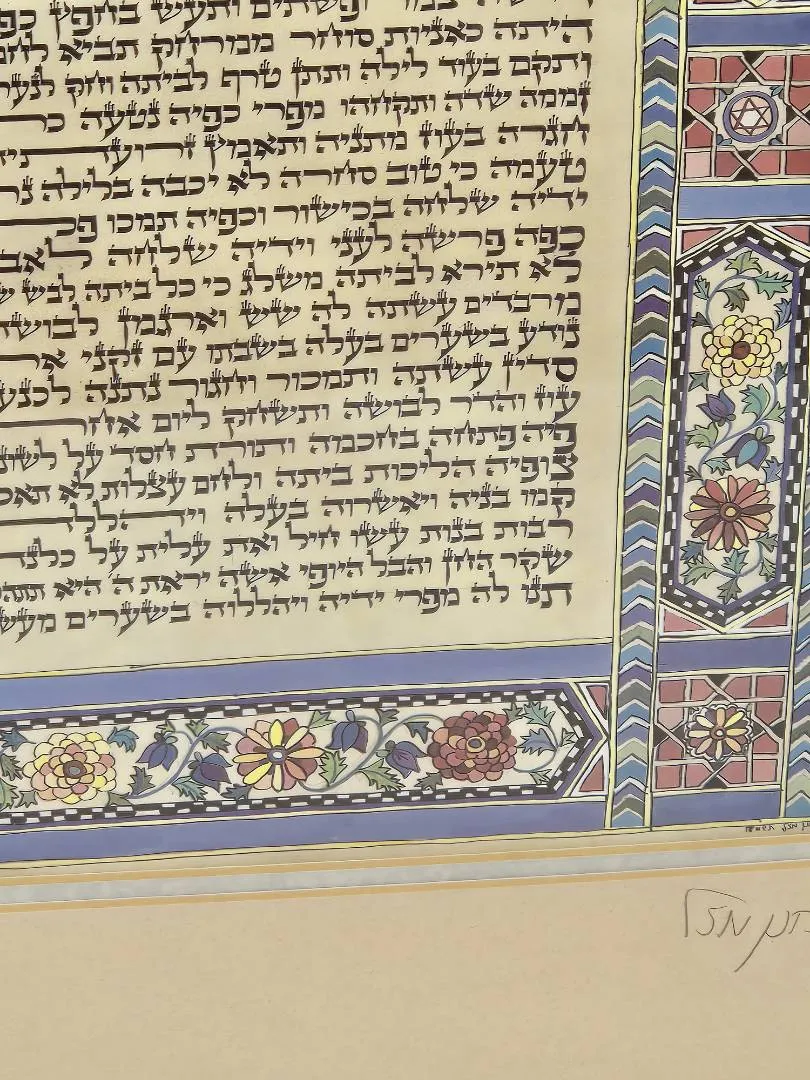 צמר ופשתים ותעש בחפץ כפ
היתה כאניות סוחר ממרחק תביא לחמ
ותקם בעוד לילה ותתן טרף לביתה וחק לנער
זממה שדה ותקחהו מפרי כפיה נטעה כר
חגרה בעוז מתניה ותאמץ
טעמה כי טוב סחרה לא יכבה בלילה נר
ידיה שלחה בכישור וכפיה תמכו
כפה פרשה לעני וידיה שלחה לאב
לא תירא לביתה משלג כי כל ביתה לבש ש
מרבדים עשתה לה שש וארגמן לבושה
נודע בשערים בעלה בשבתו עם זקני אר
סדין עשתה ותמכור וחגור נתנה לכנענ
עוז והדר לבושה ותשחק ליום אחר
פיה פתחה בחכמה ותורת חסד על לשונ
צופיה הליכות ביתה ולחם עצלות לא תאכ
קמו בניה ויאשרוה בעלה ויהלל
רבות בנות עשו חיל ואת עלית על כלנה
שקר החן והבל היופי אשה יראת ה׳ היא תתהל
תנו לה מפרי ידיה ויהללוה בשערים מעש